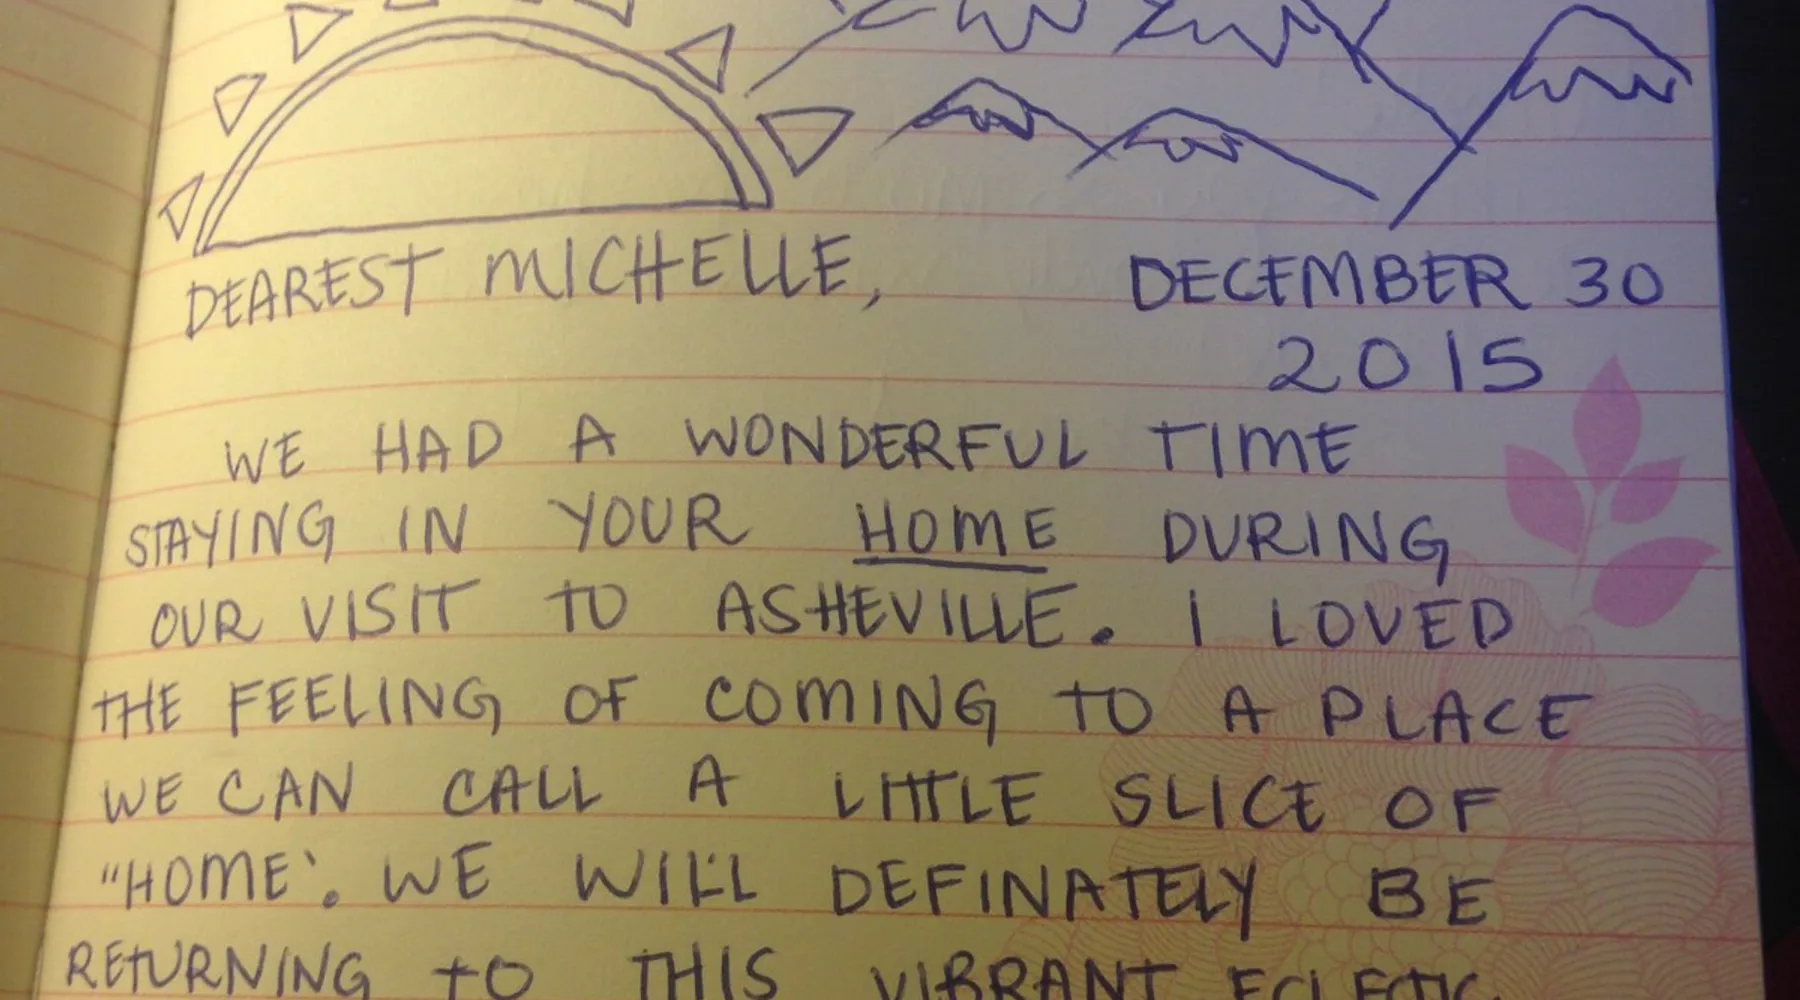 DEAREST MICHELLE,
DECEMBER 30
2015
WE HAD A WONDERFUL TIME
STAYING IN YOUR HOME DURING
OUR VISIT TO ASHEVILLE. I LOVED
THE FEELING OF COMING TO A PLACE
WE CAN CALL A LITTLE SLICE OF
"HOME". WE WILL DEFINATELY BE
RETURNING TO THIS VIBRANT ECLECTIC